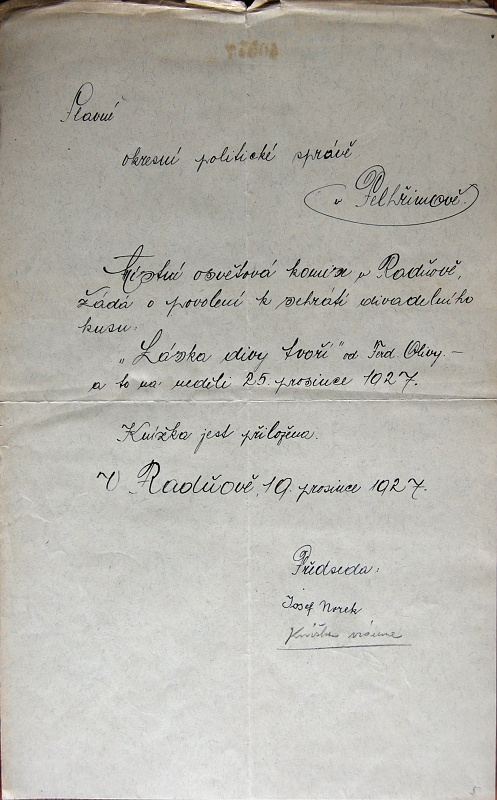 Slavné
okresní politické správě
v Pelhřimově.
Místní osvětová komise v Radňově,
žádá o povolení k sehrátí divadelního
kusu:
„Láska divy tvoří" od Ferd Olivy.—
a to na neděli 25. prosince 1927.
Knížka jest přiložena.
V Radňově, 19. prosince 1927.
Předseda:
Josef Norek
Knížka vrácena
5